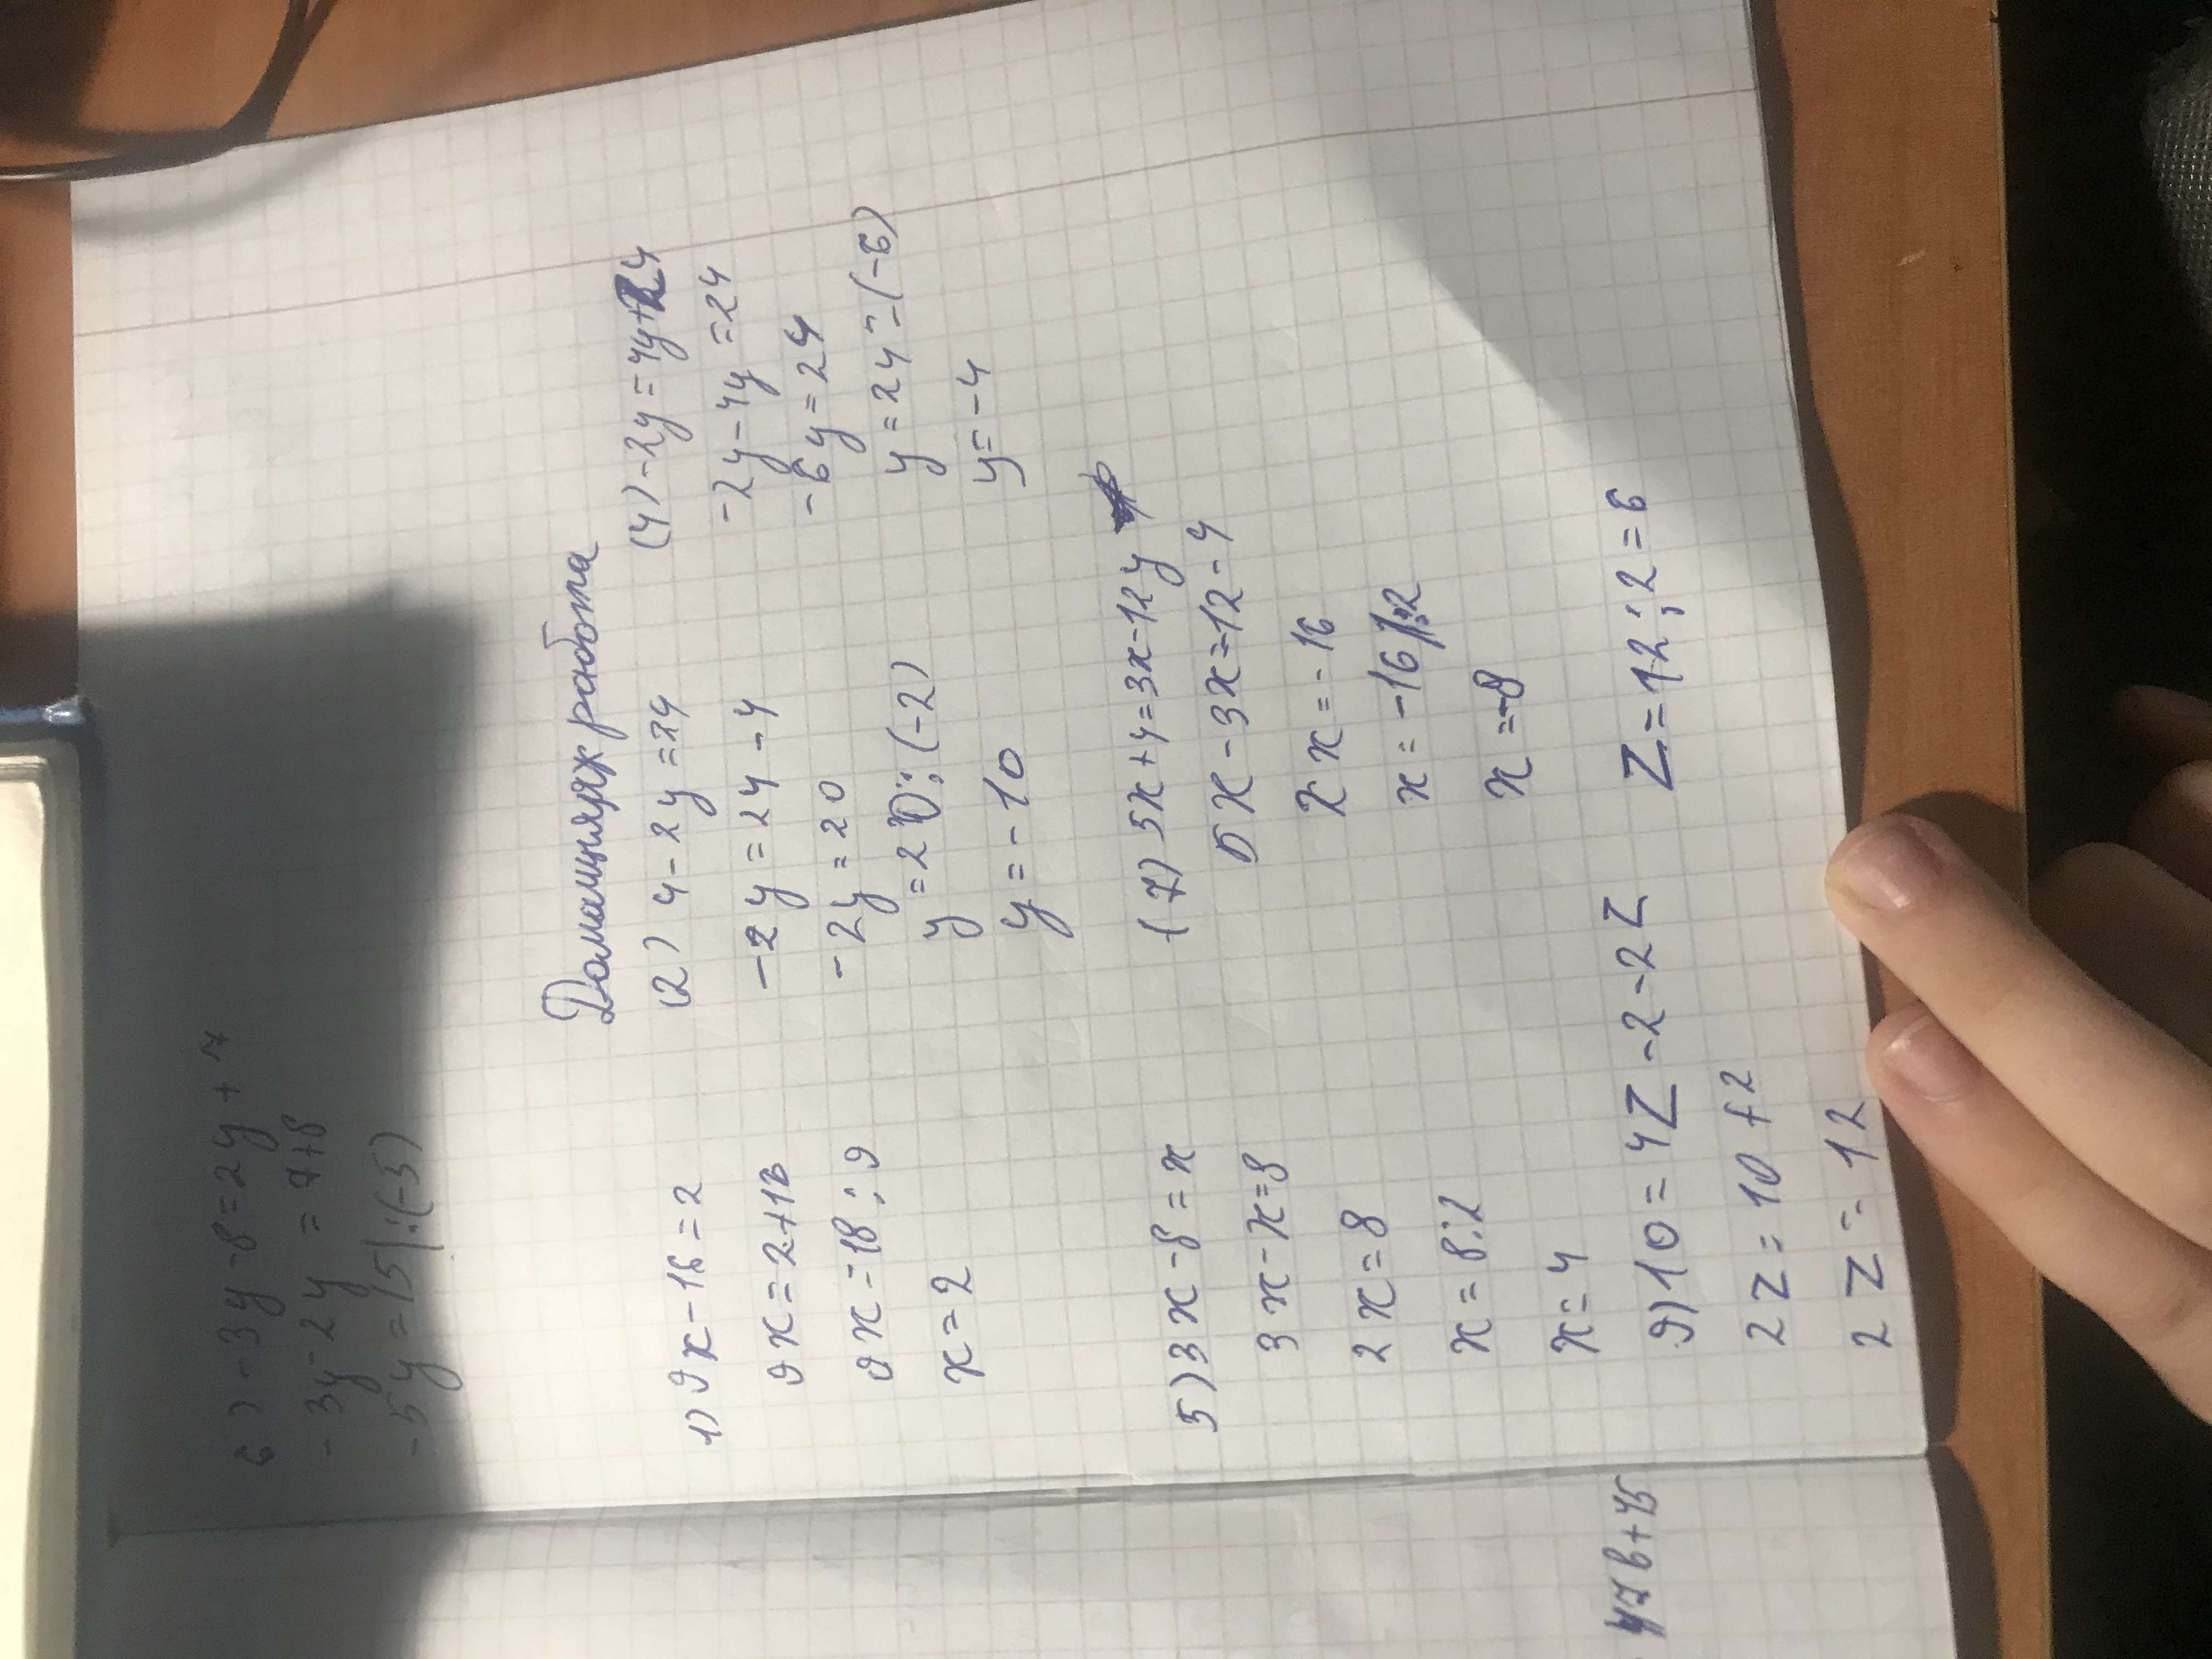 6) -3y-8=2y+7
-3y-2y=7+8
-5y=15|:(-5)
Домашняя работа
1) 9x-16=2
9x=2+16
9x=18:9
x=2
(2) 4-2y=24
-2y=24-4
-2y=20
y=20:(-2)
y=-10
(4) -2y=4y+24
-2y-4y=24
-6y=24
y=24:(-6)
y=-4
5) 3x-8=x
3x-x=8
2x=8
x=8:2
x=4
(7) 5x+4=3x-12
5x-3x=-12-4
2x=-16
x=-16/:2
x=-8
9) 10=4z-2-2z
2z=10+2
2z=12
z=12:2=6
47b+45